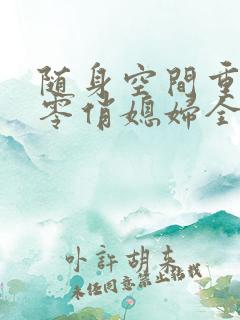 随身空間重
零俏媳婦全
小許胡來
未经同意禁止搬我